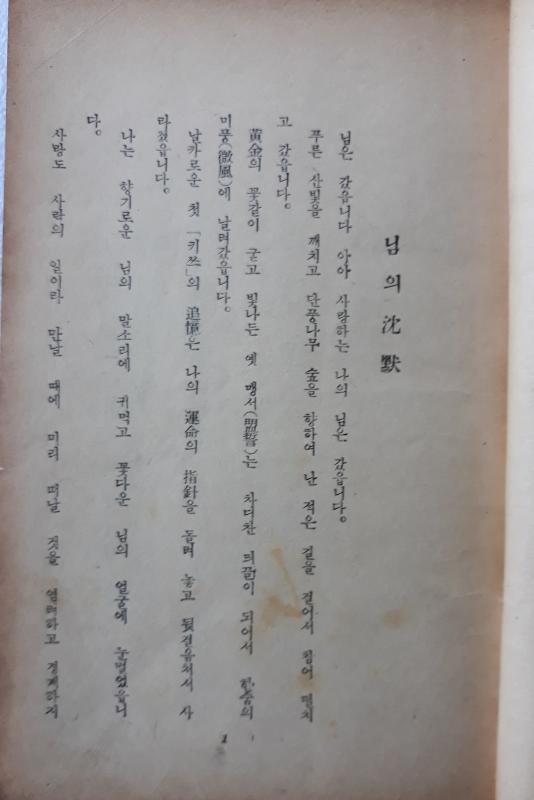 님의 沈默
님은 갔읍니다 아아 사랑하는 나의 님은 갔읍니다。
푸른 산빛을 깨치고 단풍나무 숲을 향하여 난 적은 길을 걸어서 참어 떨치
고 갔읍니다。
黃金의 꽃같이 굳고 빛나든 옛 맹서(盟誓)는 차디찬 띄끌이 되어서 한숨의
미풍(微風)에 날려갔읍니다。
날카로운 첫「키쓰」의 追憶은 나의 運命의 指針을 돌려 놓고 뒷걸음처서 사
라졌읍니다。
나는 향기로운 님의 말소리에 귀먹고 꽃다운 님의 얼굴에 눈멀었읍니
다。
사랑도 사람의 일이라 만날 때에 미리 떠날 것을 염려하고 경계하지
1